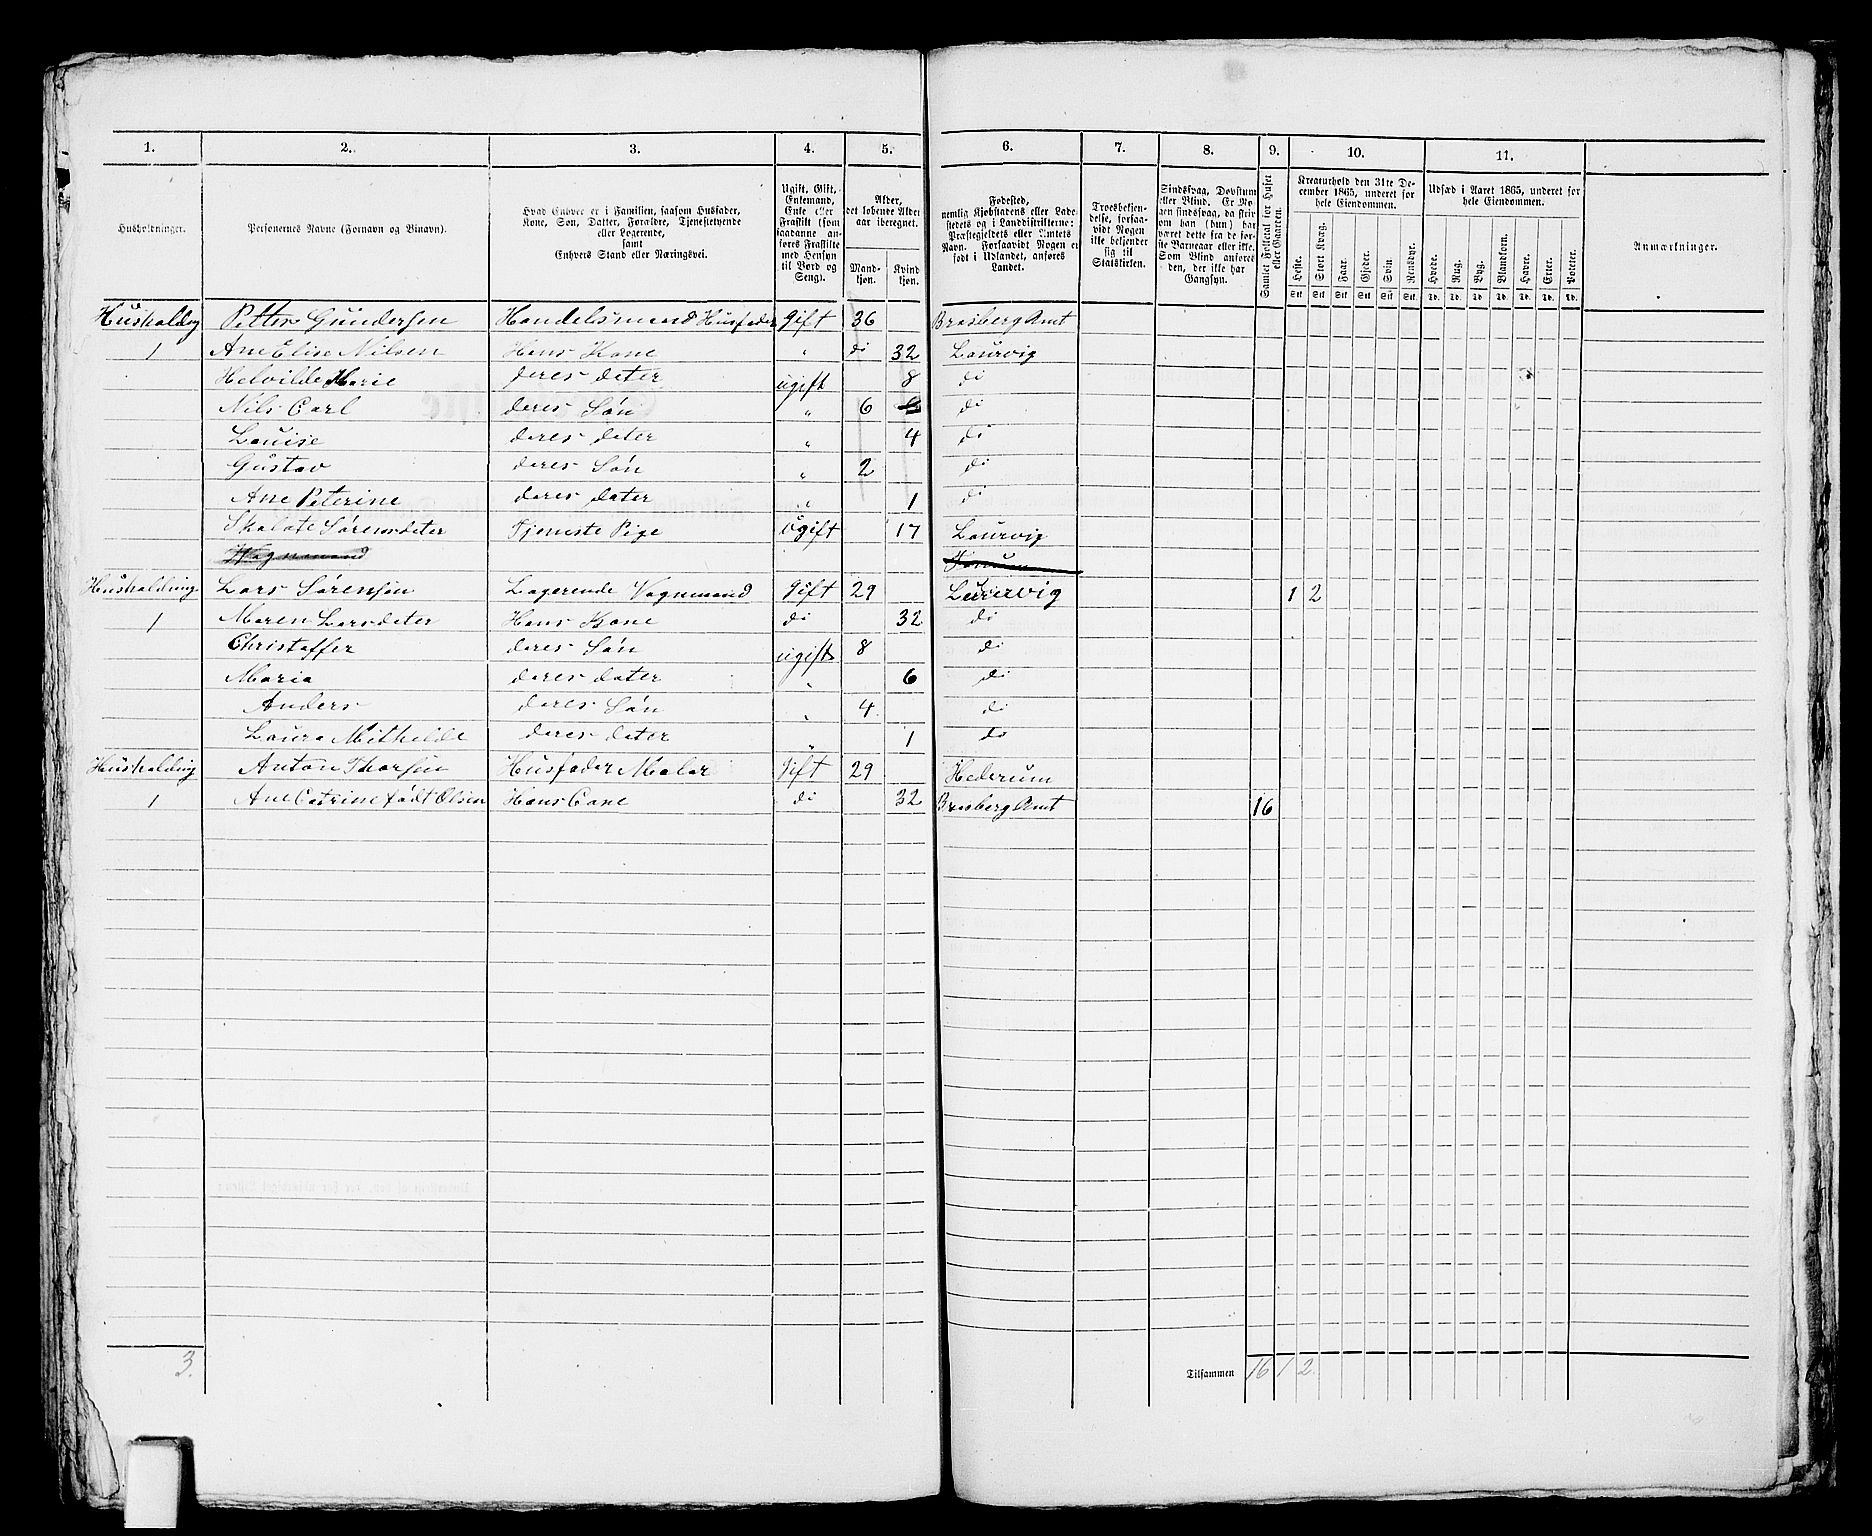 1. 2. 3. 4. 5. 6. 7. 8. 9. 10. 11.
Husholdninger.
Personernes Navne (Fornavn og Binavn).
Hvad Enhver er i Familien, saasom Husfader, Kone, Søn, Datter, Forældre, Tjenestetyende eller Logerende, samt Enhvers Stand eller Næringsvei.
Ugift, Gift, Enkemand, Enke eller Fraskilt (som saadanne anføres Fraskilte med Hensyn til Bord og Seng).
Alder, det løbende Alders aar iberegnet.
Mandkjøn. Kvindkjøn.
Fødested, nemlig Kjøbstadens eller Ladestedets og i Landdistrikterne: Præstegjeldets eller Amtets Navn. Forsaavidt Nogen er født i Udlandet, anføres Landet.
Troesbekjendelse, forsaavidt Nogen ikke bekjender sig til Statskirken.
Sindssvag, Døvstum eller Blind. Er Nogen sindssvag, da skriv om han (hun) har været dette fra de første Barneaar eller ikke. Som Blind anføres den, der ikke har Gangsyn.
Samlet Folketal for Huset eller Gaarden.
Kreaturhold den 31te December 1865, underet for hele Eiendommen.
Heste. Stort Kvæg. Faar. Gjeder. Svin Rensdyr.
Stk Stk Stk Stk Stk Stk.
Udsæd i Aaret 1865, underet for hele Eiendommen.
Hvede. Rug. Byg. Blandkorn. Havre. Erter. Poteter.
Td. Td. Td. Td. Td. Td. Td.
Anmærkninger.
Husholdng Petter Gundersen Handelsmand Husfader Gift 36 Brasberg Amt
1 Ane Elise Nilsen Hans Kone " di 32 Laurvig
Helvilde Marie deres dater ugift 8 di
Nils Carl deres Søn " 6 6 di
Louise deres dater " 4 di
Gustav deres Søn " 2 di
Ane Peterine deres dater " 1 di
Skalate Sørensdater Tjeneste Pige Ugift 17 Laurvig
Vognmand
Husholdning Lars Sørensøn Logerende Vognmand Gift 29 Laurvig 1 2
1 Maren Larsdater Hans Kone di 32 di
Christoffer deres Søn ugift 8 di
Maria deres dater " 6 di
Anders deres Søn " 4 di
Laura Mithilde deres dater " 1 di
Husholdning Anton Thorsen Husfader Maler Gift 29 Hederum
1 Ane Catrine født Olsen Hans Cone di 32 Brasberg Amt 16
3.
Tilsammen 16 1 2.